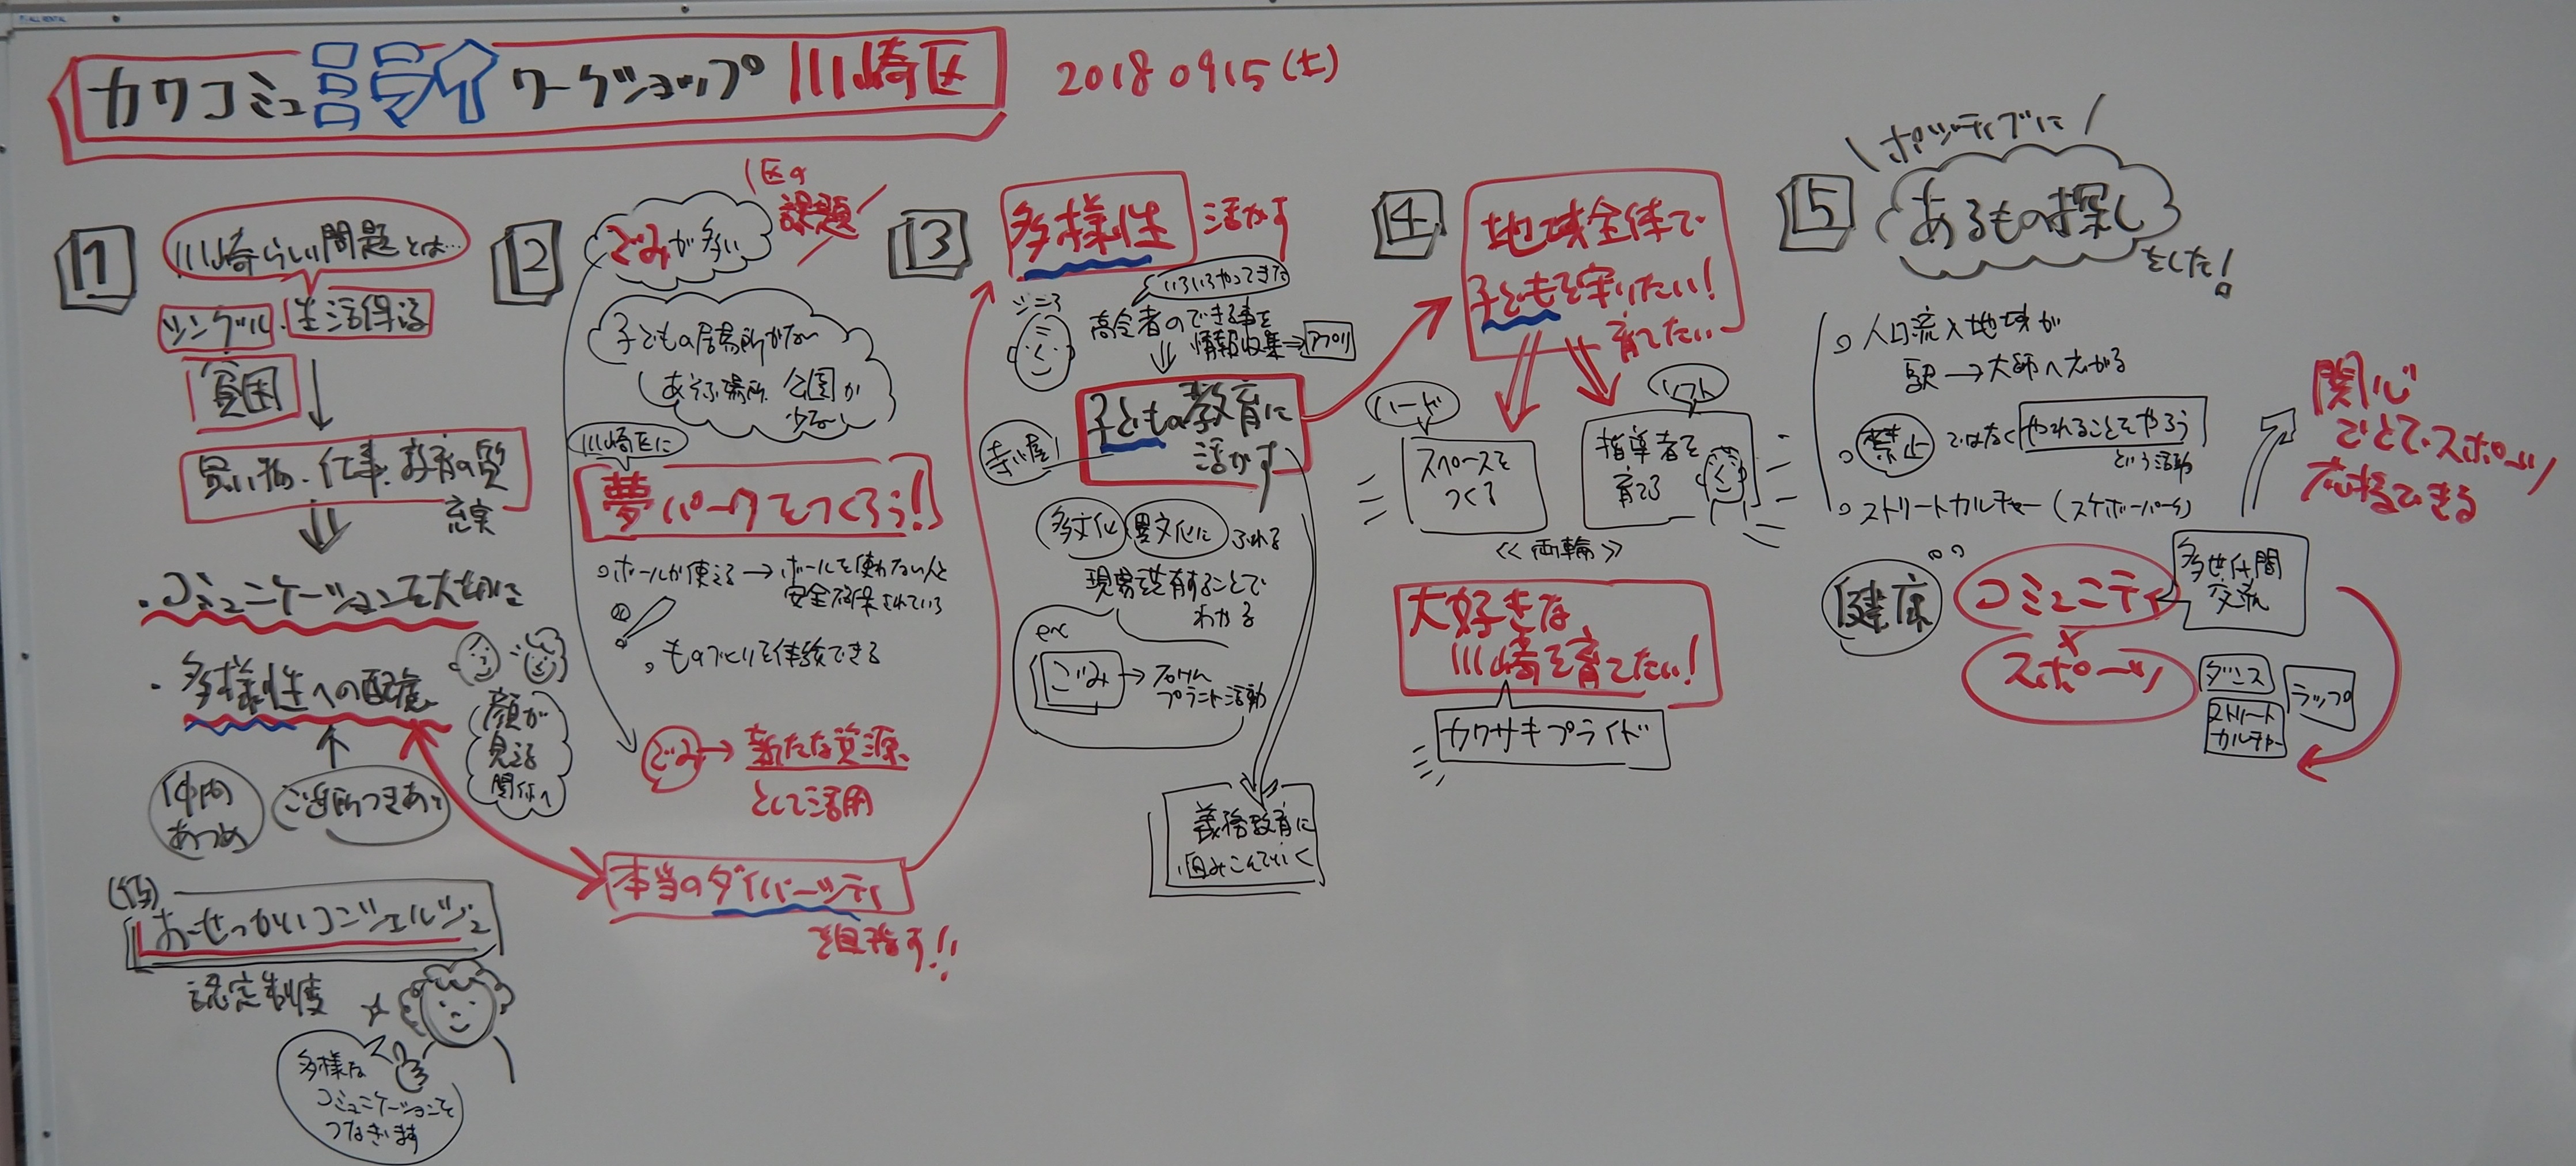 カワコミュ ワークショップ 川崎区
2018 0915(土)
1
川崎らしい問題とは…
シングル・生活保護
貧困
買い物・仕事・教育の質
充実
・コミュニケーションを大切に
・多様性への配慮
仲間
あつめ
ご近所つきあい
顔が
見える
関係へ
(仮)
おせっかいコンシェルジュ
認定制度
多様な
コミュニケーションを
つなぎます
2
区の
課題
ごみが多い
子どもの居場所がない
あそぶ場所、公園が
少ない
川崎区に
夢パークをつくろう!
ボールが使える→ボールを使わない人も
安全確保されている
ものづくりを体験できる
ごみ→新たな資源
として活用
本当のダイバーシティ
を目指す!!
3
多様性 活かす
いろいろやってきた
高令者のできる事を
情報収集→アプリ
子どもの教育に
活かす
寺小屋
多文化 異文化に ふれる
現場を共有することで
わかる
ごみ→
プラント活動
義務教育に
組みこんでいく
4
地域全体で
子どもを守りたい!
育てたい
ハード
スペースを
つくる
ソフト
指導者を
育てる
≪両輪≫
大好きな
川崎を育てたい!
カワサキプライド
5
ポジティブに
あるもの探し
をした!
人口流入地域が
駅→大師へ広がる
禁止ではなくやれることをやろう
という活動
ストリートカルチャー(スケボーパーク)
健康
コミュニティ
×
スポーツ
多世代間
交流
ダンス
ラップ
ストリート
カルチャー
関心
ごとで、スポーツ
応援できる